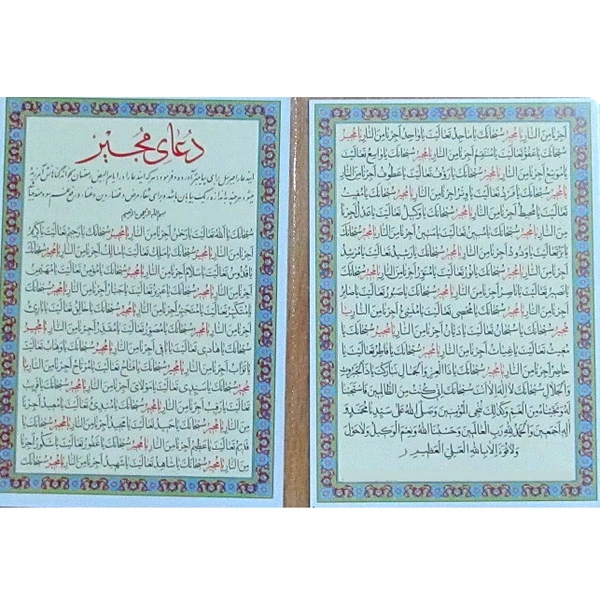 دعای مجیر
بسم الله الرحمن الرحیم
سُبْحانَكَ یا اَللهُ تَعالَیْتَ یا رَحْمنُ اَجِرْنا مِنَ النّارِ یا مُجیرُ سُبْحانَكَ یا رَحیمُ تَعالَیْتَ یا كَریمُ
اَجِرْنا مِنَ النّارِ یا مُجیرُ سُبْحانَكَ یا مَلِكُ تَعالَیْتَ یا مالِكُ اَجِرْنا مِنَ النّارِ یا مُجیرُ سُبْحانَكَ
یا قُدُّوسُ تَعالَیْتَ یا سَلامُ اَجِرْنا مِنَ النّارِ یا مُجیرُ سُبْحانَكَ یا مُؤْمِنُ تَعالَیْتَ یا مُهَیْمِنُ
اَجِرْنا مِنَ النّارِ یا مُجیرُ سُبْحانَكَ یا عَزیزُ تَعالَیْتَ یا جَبّارُ اَجِرْنا مِنَ النّارِ یا مُجیرُ سُبْحانَكَ یا
مُتَكَبِّرُ تَعالَیْتَ یا مُتَجَبِّرُ اَجِرْنا مِنَ النّارِ یا مُجیرُ سُبْحانَكَ یا خالِقُ تَعالَیْتَ یا بارِئُ
اَجِرْنا مِنَ النّارِ یا مُجیرُ سُبْحانَكَ یا مُصَوِّرُ تَعالَیْتَ یا مُقَدِّرُ اَجِرْنا مِنَ النّارِ یا مُجیرُ
سُبْحانَكَ یا هادی تَعالَیْتَ یا باقی اَجِرْنا مِنَ النّارِ یا مُجیرُ سُبْحانَكَ یا وَهّابُ تَعالَیْتَ
یا تَوّابُ اَجِرْنا مِنَ النّارِ یا مُجیرُ سُبْحانَكَ یا فَتّاحُ تَعالَیْتَ یا مُرْتاحُ اَجِرْنا مِنَ النّارِ یا
مُجیرُ سُبْحانَكَ یا سَیِّدی تَعالَیْتَ یا مَوْلایَ اَجِرْنا مِنَ النّارِ یا مُجیرُ سُبْحانَكَ یا قَریبُ
تَعالَیْتَ یا رَقیبُ اَجِرْنا مِنَ النّارِ یا مُجیرُ سُبْحانَكَ یا مُبْدِئُ تَعالَیْتَ یا مُعیدُ اَجِرْنا
مِنَ النّارِ یا مُجیرُ سُبْحانَكَ یا حَمیدُ تَعالَیْتَ یا مَجیدُ اَجِرْنا مِنَ النّارِ یا مُجیرُ سُبْحانَكَ یا
قَدیمُ تَعالَیْتَ یا عَظیمُ اَجِرْنا مِنَ النّارِ یا مُجیرُ سُبْحانَكَ یا غَفُورُ تَعالَیْتَ یا شَكُورُ اَجِرْنا
مِنَ النّارِ یا مُجیرُ سُبْحانَكَ یا شاهِدُ تَعالَیْتَ یا شَهیدُ اَجِرْنا مِنَ النّارِ یا مُجیرُ سُبْحانَكَ
اَجِرْنا مِنَ النّارِ یا مُجیرُ سُبْحانَكَ یا ماجِدُ تَعالَیْتَ یا واحِدُ اَجِرْنا مِنَ النّارِ یا مُجیرُ
سُبْحانَكَ یا عَفُوُّ تَعالَیْتَ یا مُنْتَقِمُ اَجِرْنا مِنَ النّارِ یا مُجیرُ سُبْحانَكَ یا واسِعُ تَعالَیْتَ
یا مُوَسِّعُ اَجِرْنا مِنَ النّارِ یا مُجیرُ سُبْحانَكَ
تَعالَیْتَ یا مُحیطُ اَجِرْنا مِنَ النّارِ یا مُجیرُ سُبْحانَكَ یا عَدْلُ اَجِرْنا
مِنَ النّارِ یا مُجیرُ سُبْحانَكَ یا مُبینُ تَعالَیْتَ یا مَتینُ اَجِرْنا مِنَ النّارِ یا مُجیرُ سُبْحانَكَ
یا بَرُّ تَعالَیْتَ یا وَدُودُ اَجِرْنا مِنَ النّارِ یا مُجیرُ سُبْحانَكَ یا رَشیدُ تَعالَیْتَ یا مُرْشِدُ
اَجِرْنا مِنَ النّارِ یا مُجیرُ سُبْحانَكَ یا نُورُ تَعالَیْتَ یا مُنَوِّرُ اَجِرْنا مِنَ النّارِ یا مُجیرُ سُبْحانَكَ
یا نَصیرُ تَعالَیْتَ یا ناصِرُ اَجِرْنا مِنَ النّارِ یا مُجیرُ سُبْحانَكَ یا صَبُورُ تَعالَیْتَ یا صابِرُ
اَجِرْنا مِنَ النّارِ یا مُجیرُ سُبْحانَكَ یا مُحْصی تَعالَیْتَ یا مُنْشِئُ اَجِرْنا مِنَ النّارِ یا
مُجیرُ سُبْحانَكَ یا سُبْحانُ تَعالَیْتَ یا دَیّانُ اَجِرْنا مِنَ النّارِ یا مُجیرُ سُبْحانَكَ یا
مُغیثُ تَعالَیْتَ یا غِیاثُ اَجِرْنا مِنَ النّارِ یا مُجیرُ سُبْحانَكَ یا فاطِرُ تَعالَیْتَ یا
حاضِرُ اَجِرْنا مِنَ النّارِ یا مُجیرُ سُبْحانَكَ یا ذَا الْعِزِّ وَ الْجَمالِ تَبارَكْتَ یا ذَا الْجَبَرُوتِ
وَ الْجَلالِ سُبْحانَكَ لا اِلهَ اِلّا اَنْتَ سُبْحانَكَ اِنّی كُنْتُ مِنَ الظّالِمینَ فَاسْتَجَبْنا
لَهُ وَ نَجَّیْناهُ مِنَ الْغَمِّ وَ كَذلِكَ نُنْجِی الْمُؤْمِنینَ وَ صَلَّی اللهُ عَلی سَیِّدِنا مُحَمَّدٍ وَ
الِهِ اَجْمَعینَ وَ الْحَمْدُ لِلّهِ رَبِّ الْعالَمینَ وَ حَسْبُنَا اللهُ وَ نِعْمَ الْوَكیلُ وَ لا حَوْلَ
وَ لا قُوَّةَ اِلّا بِاللهِ الْعَلِیِّ الْعَظیمِ